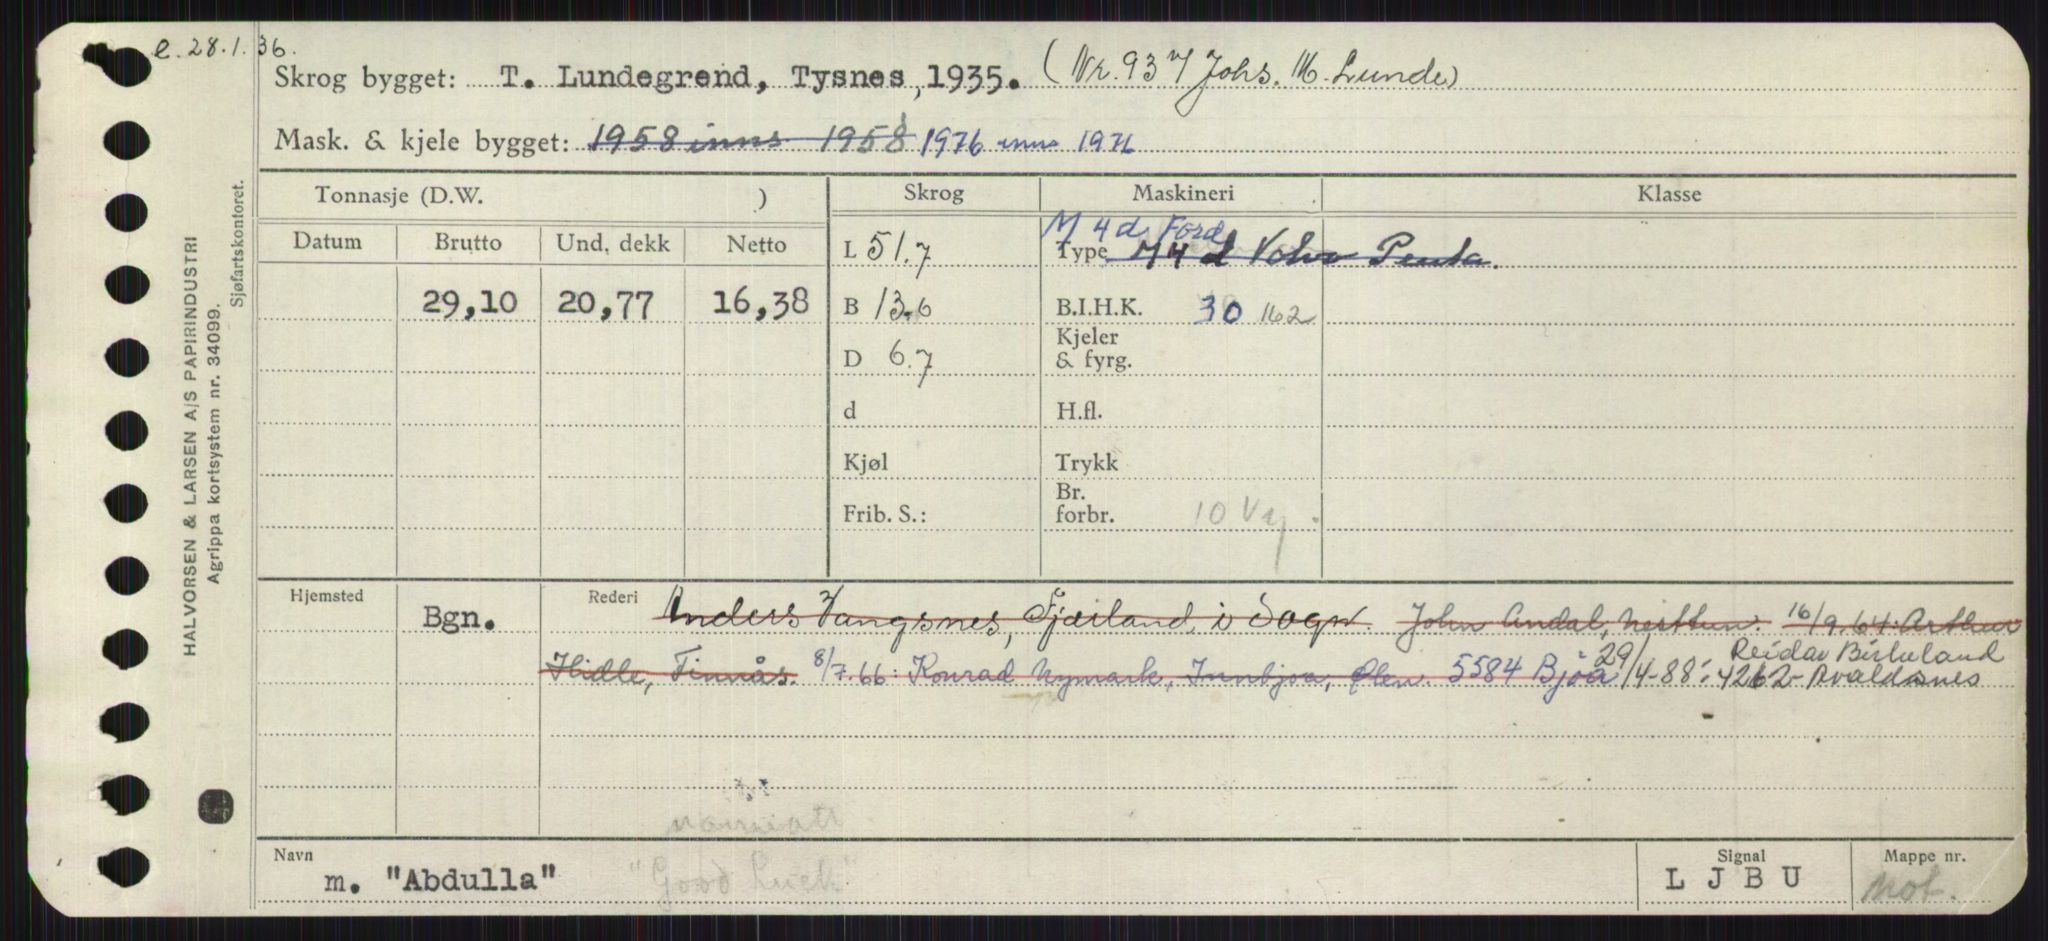 e. 28.1.36.
Skrog bygget: T. Lundegrend, Tysnes, 1935. (Nr. 937 Johs. M. Lunde)
Mask. & kjele bygget: 1958 inns 1958 1976 inns 1976
Tonnasje (D.W. ) Skrog Maskineri Klasse
Datum Brutto Und. dekk Netto
M 4 d Ford
L 51.7 Type M 4 d Volvo Penta.
29,10 20,77 16,38 B 13.6 B.I.H.K. 30 162
D 6.7 Kjeler & fyrg.
d H.fl.
Kjøl Trykk
Frib. S.: Br. forbr. 10
Hjemsted Bgn. Rederi Anders Vangsnes, Fjærland i Sogn. John Andal, Nesttun. 16/9.64: Arthur
Hidle, Finnås. 8/7.66: Konrad Nymark, Innbjoa, Ølen. 5584 Bjoa 29/4-88: Reidar Birkeland
4262 Avaldsnes
Navn m. "Abdulla" "Good Luck" Signal L J B U Mappe nr. Mot.
HALVORSEN & LARSEN A/S PAPIRINDUSTRI
Agrippa kortsystem nr. 34099.
Sjøfartskontoret.